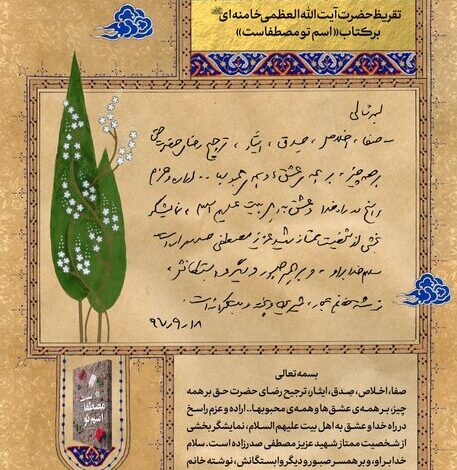 تقریظ حضرت آیت الله العظمی خامنه ای
بر کتاب «اسم تو مصطفاست»
بسمه تعالی
ـ صفا، اخلاص، صدق، ایثار، ترجیح رضای حضرت حق
بر همه چیز، بر همه‌ی عشق‌ها و همه‌ی محبوبها .. اراده و عزم
راسخ در راه خدا و عشق به اهل بیت علیهم السلام، نمایشگر
بخشی از شخصیت ممتاز شهید عزیز مصطفی صدرزاده است
سلام خدا بر او، و بر همسر صبور و دیگر وابستگانش،
نوشته خانم
۹۷/۹/۱۸
اسم تو
مصطفاست
بسمه تعالی
صفا، اخلاص، صدق، ایثار، ترجیح رضای حضرت حق بر همه
چیز، بر همه‌ی عشق‌ها و همه‌ی محبوبها.. اراده و عزم راسخ
در راه خدا و عشق به اهل بیت علیهم السلام، نمایشگر بخشی
از شخصیت ممتاز شهید عزیز مصطفی صدرزاده است. سلام
خدا بر او، و بر همسر صبور و دیگر وابستگانش، نوشته خانم